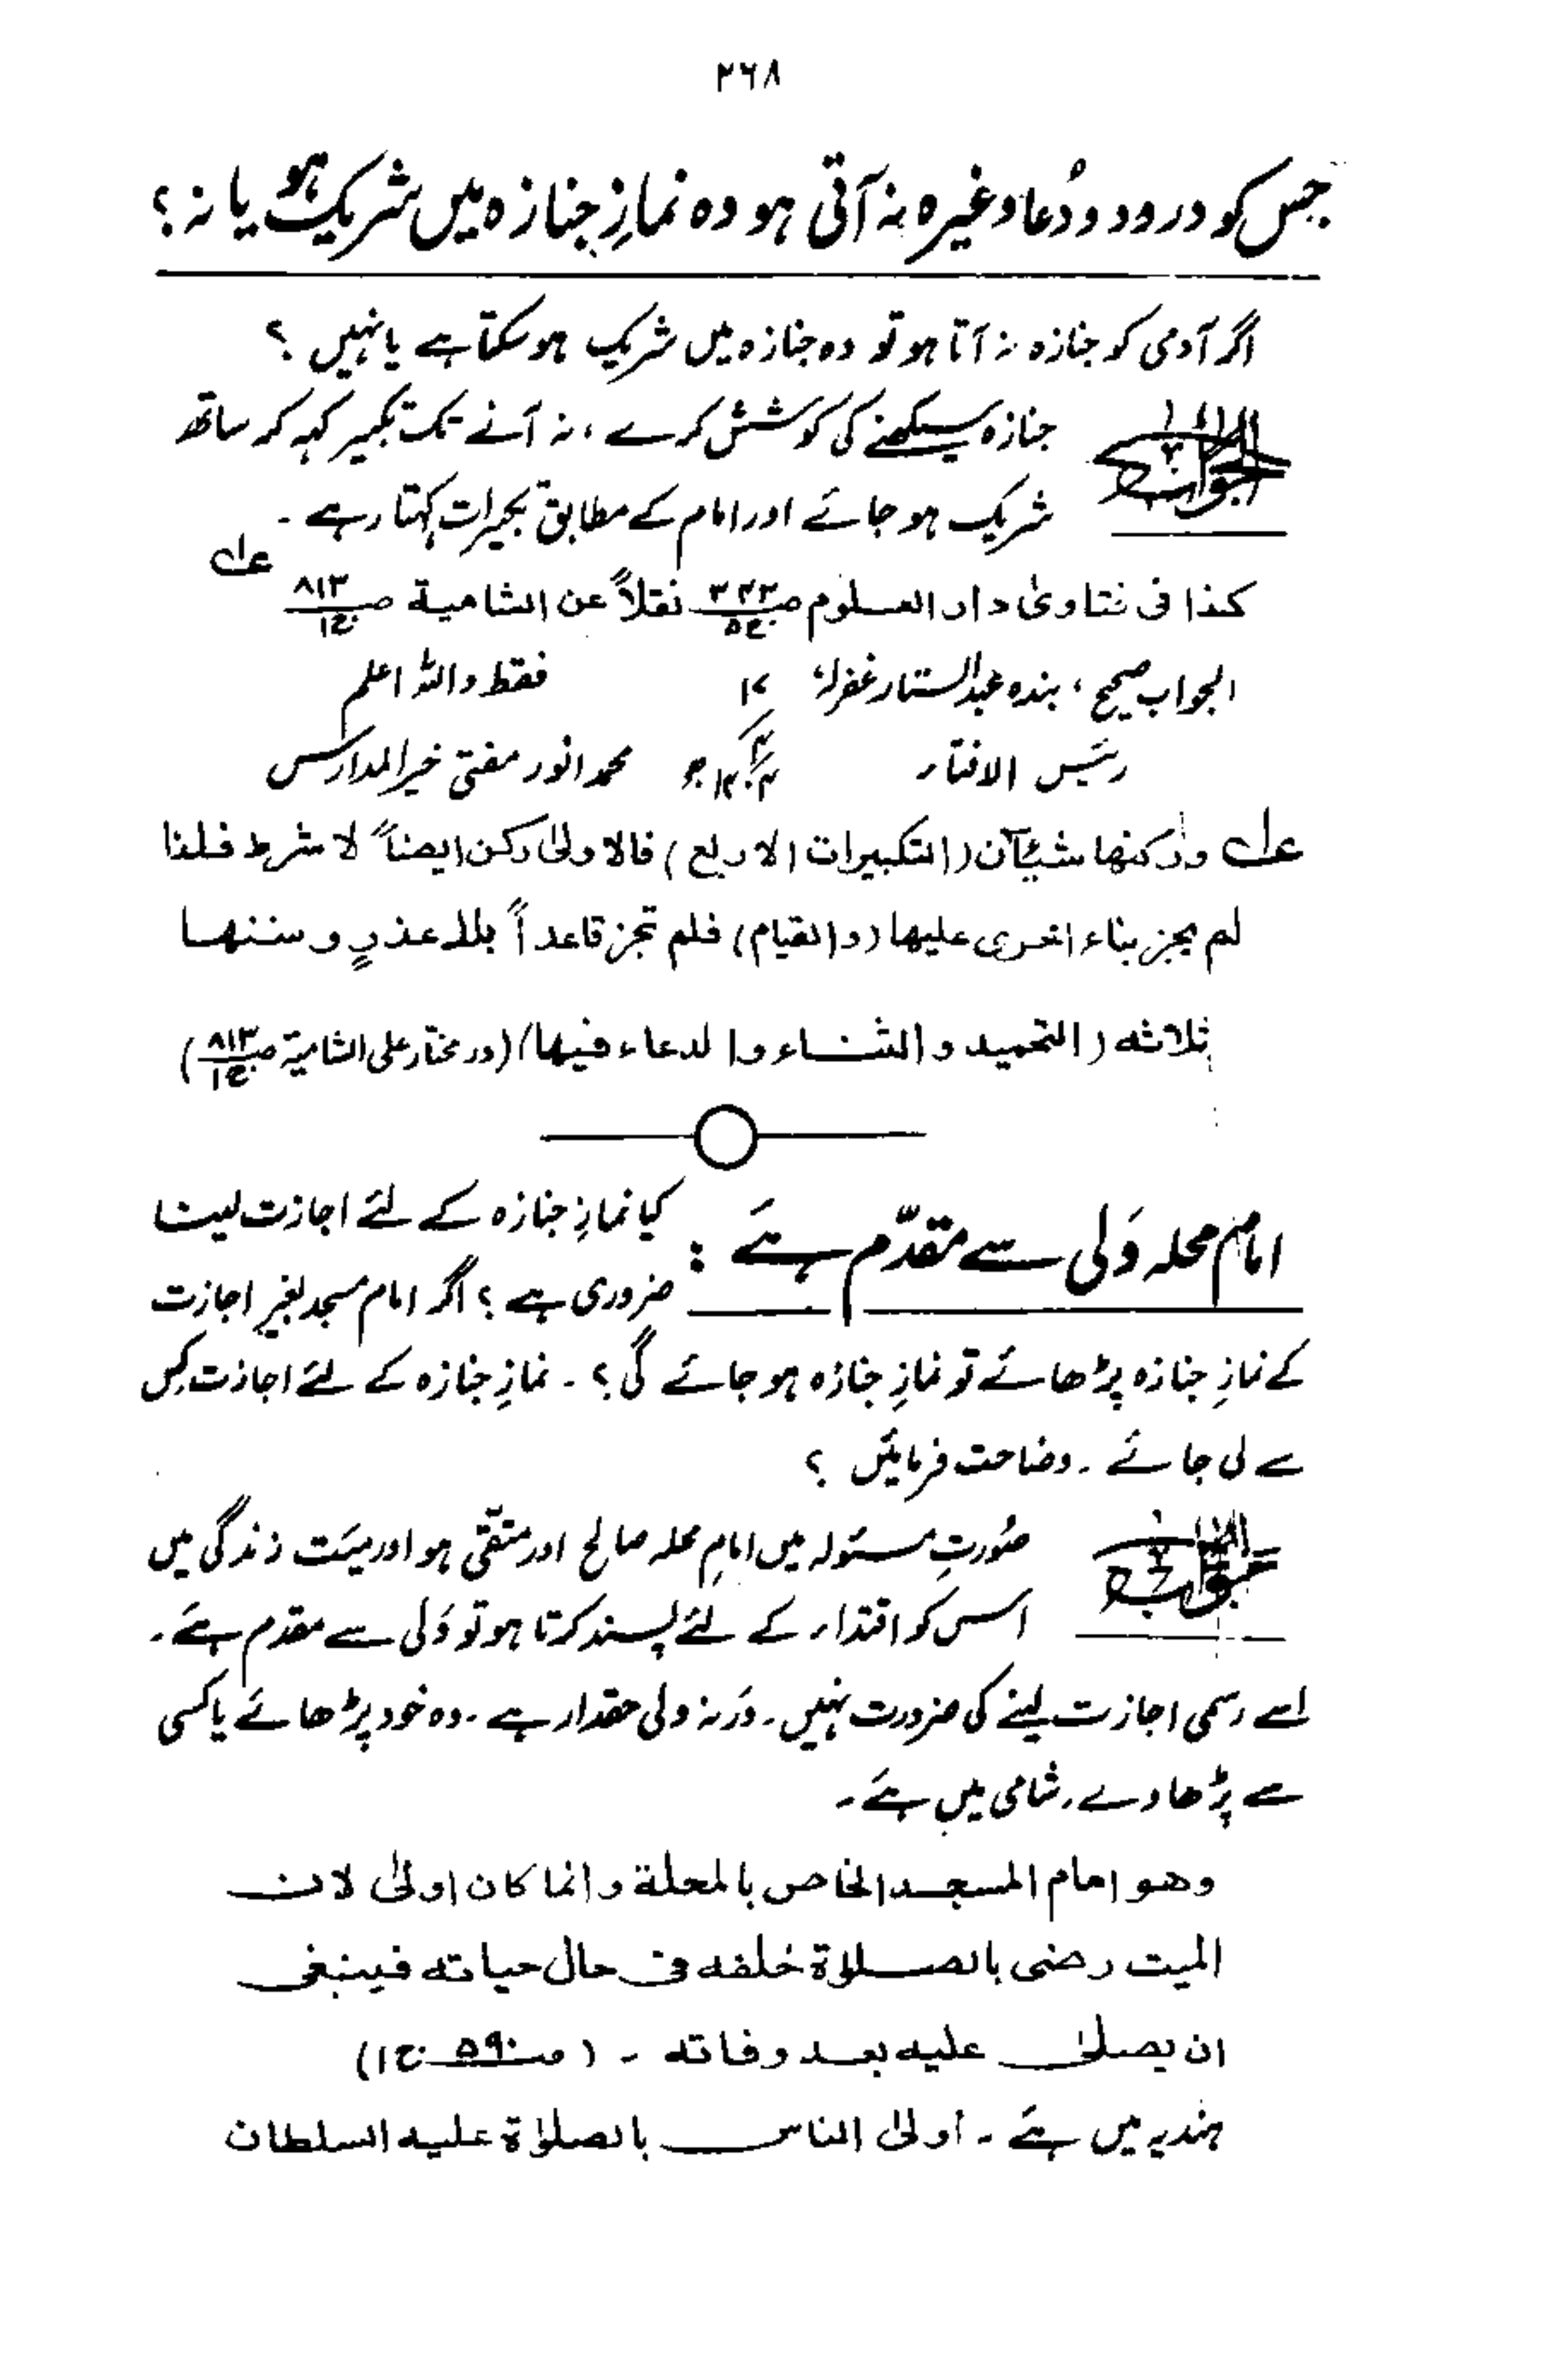 ۲۶۸
جس کو درود و دُعا وغیرہ نہ آتی ہو وہ نمازِ جنازہ میں شریک ہو یا نہ؟
اگر آدمی کو جنازہ نہ آتا ہو تو وہ جنازہ میں شریک ہو سکتا ہے یا نہیں ؟
الجواب جنازہ سیکھنے کی کوشش کرے ، نہ آنے تک تکبیر کہہ کر ساتھ
شریک ہو جائے اور امام کے مطابق تکبیرات کہتا رہے ۔
کذا فی فتاویٰ دار العلوم صـ ۳۳۳ ج ۵ نقلاً عن الشامیة صـ ۸۱۳ ج ۱ عـ۱
الجواب صحیح ، بندہ عبدالستار غفرلہٗ فقط واللہ اعلم
رئیس الافتاء محمد انور مفتی خیر المدارس
عـ۱ ورکنها شیئآن (التکبیرات الاربع) فالاولیٰ رکن ایضاً لا شرط فلذا
لم یجز بناء اخری علیها (والقیام) فلم تجز قاعداً بلا عذرٍ وسننها
ثلاثه (التحمید والثناء والدعاء فیها) (در مختار علی الشامیة صـ ۸۱۳ ج ۱)
امام محلہ وَلی سے مقدّم ہے : کیا نمازِ جنازہ کے لئے اجازت لینا
ضروری ہے ؟ اگر امام مسجد بغیر اجازت
کے نمازِ جنازہ پڑھائے تو نمازِ جنازہ ہو جائے گی ؟ ۔ نمازِ جنازہ کے لئے اجازت کِس
سے لی جائے ۔ وضاحت فرمائیں ؟
الجواب صُورتِ مسئولہ میں امامِ محلہ صالح اور متقّی ہو اور میّت زندگی میں
اس کو اقتداء کے لئے پسند کرتا ہو تو وَلی سے مقدم ہے ۔
اسے رسمی اجازت لینے کی ضرورت نہیں ۔ ورنہ ولی حقدار ہے ۔ وہ خود پڑھائے یا کسی
سے پڑھا دے ۔ شامی میں ہے ۔
وهو امام المسجد الخاص بالمحلة وانما کان اولیٰ لان
المیت رضی بالصلوٰة خلفه فی حال حیاته فینبغی
ان یصلیٰ علیه بعد وفاته ۔ (صـ ۵۹۰ ج ۱)
ہندیہ میں ہے ۔ اولیٰ الناس بالصلوٰة علیه السلطان